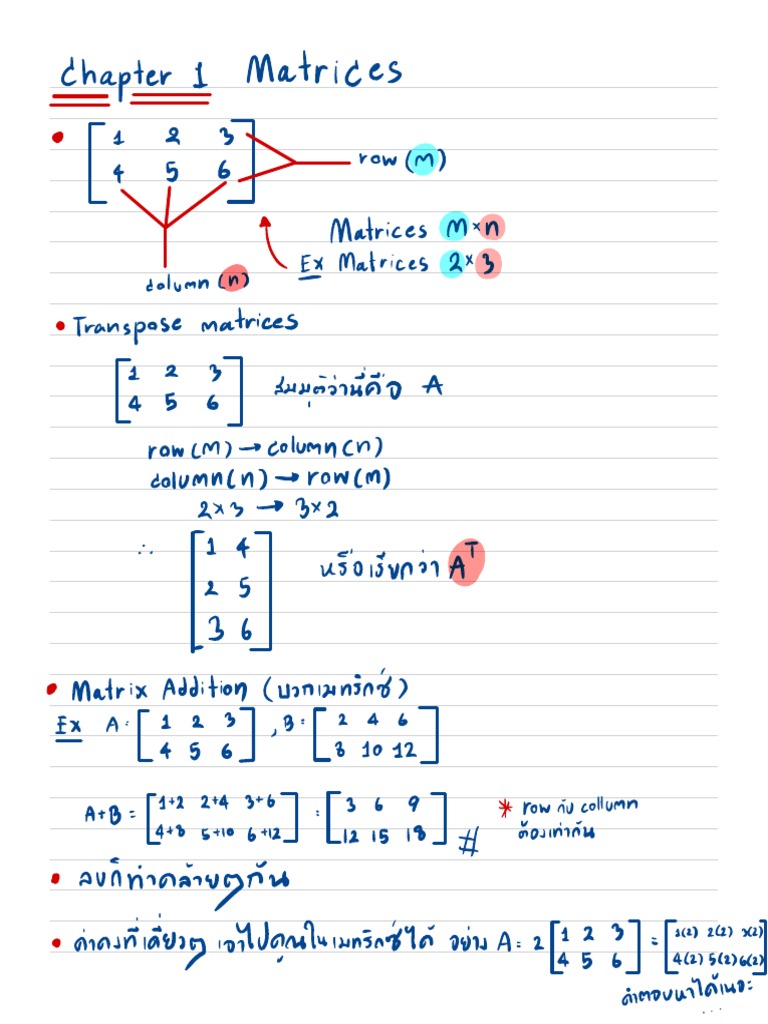 Chapter 1 Matrices
1 2 3
4 5 6
row (m)
Matrices m×n
Ex Matrices 2×3
column (n)
Transpose matrices
1 2 3
4 5 6
สมมุติว่านี่คือ A
row (m) → column (n)
column (n) → row (m)
2×3 → 3×2
∴
1 4
2 5
3 6
หรือเรียกว่า Aᵀ
Matrix Addition (บวกเมทริกซ์)
Ex A = [1 2 3 , B = [2 4 6
4 5 6] 8 10 12]
A+B = [1+2 2+4 3+6 = [3 6 9
4+8 5+10 6+12] 12 15 18] #
* row กับ collumn
ต้องเท่ากัน
ลบก็ทำคล้ายๆกัน
ค่าคงที่เดี่ยวๆ เอาไปคูณในเมทริกซ์ได้ อย่าง A = 2 [1 2 3 = [1(2) 2(2) 3(2)
4 5 6] 4(2) 5(2) 6(2)]
คำตอบหาได้เนอะ
...